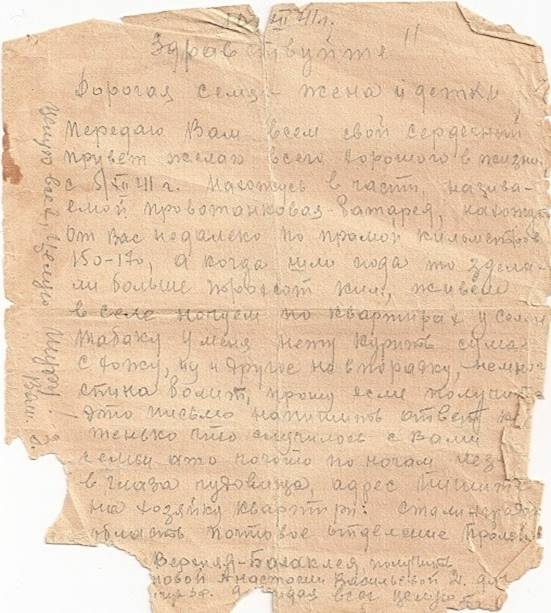 XII 41г.
Здравствуйте!!
Дорогая семья - жена и детки
Передаю Вам всем свой сердечный
привет желаю всего хорошего в жизни.
с 5/XII 41 г. Нахожусь в части, называ-
емой провотанковая-батарея, нахожусь
от Вас недалеко по прямой километров
150-170, а когда шли сюда то здела-
ли больше трохсот ким, живем
в селе ночуем по квартирах у
табаку у меня нету курить
с хожу, ну и другое на впорядку, немно
спина болит, прошу если получите
это письмо напишить ответ
что случилось с Вами
семьи ато ночью по ночам лез
в глаза чудовища, адрес пишите
на хозяйку квартиры: сталинград
область почтовое отделение Пролей
Верхняя-Балаклея, получить
новой Анастасии Васильевой 2. для
целую
целую всех, целую
Ваш